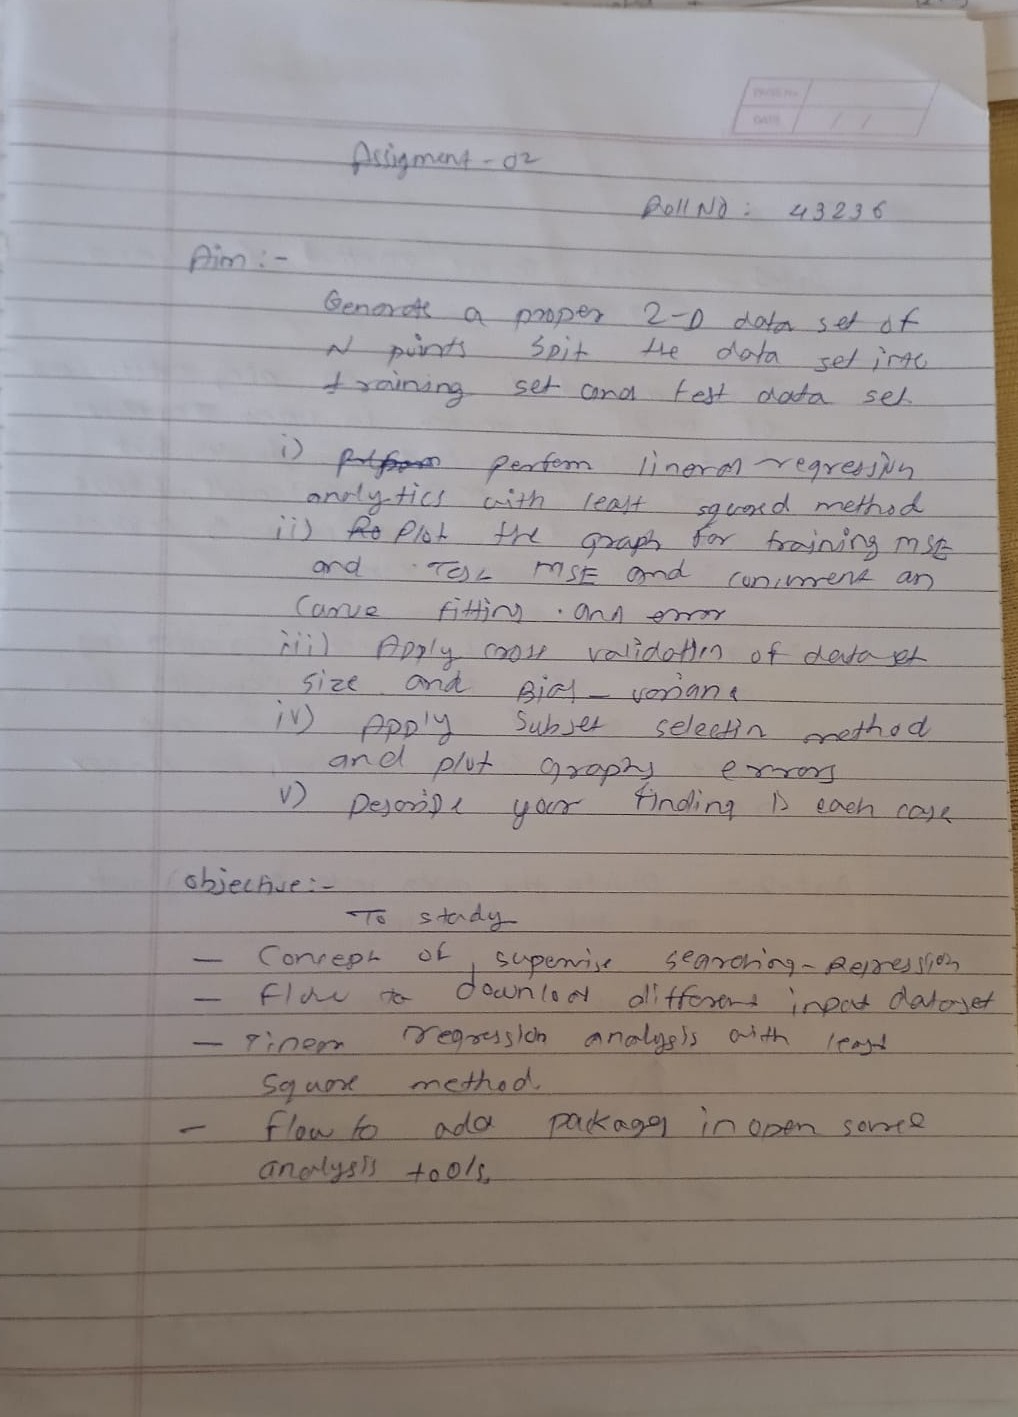 PAGE No.
DATE / /
Assigment - 02
Roll No : 43236
Aim :-
Generate a proper 2-D data set of
N points spit the data set into
training set and test data set.
i) perfom linera regression
analytics with least squared method
ii) Plot the graph for training MSE
and Test MSE and comment on
Curve fitting and error
iii) Apply cross validation of dataset
size and Bias - variance
iv) Apply Subset selectin method
and plot graphs errors
v) Describe your finding is each case
objective :-
To study
- Concept of supervise searching - Regression
- Flow to download different input dataset
- Linear regression analysis with least
square method.
- flow to add packages in open source
analysis tools.